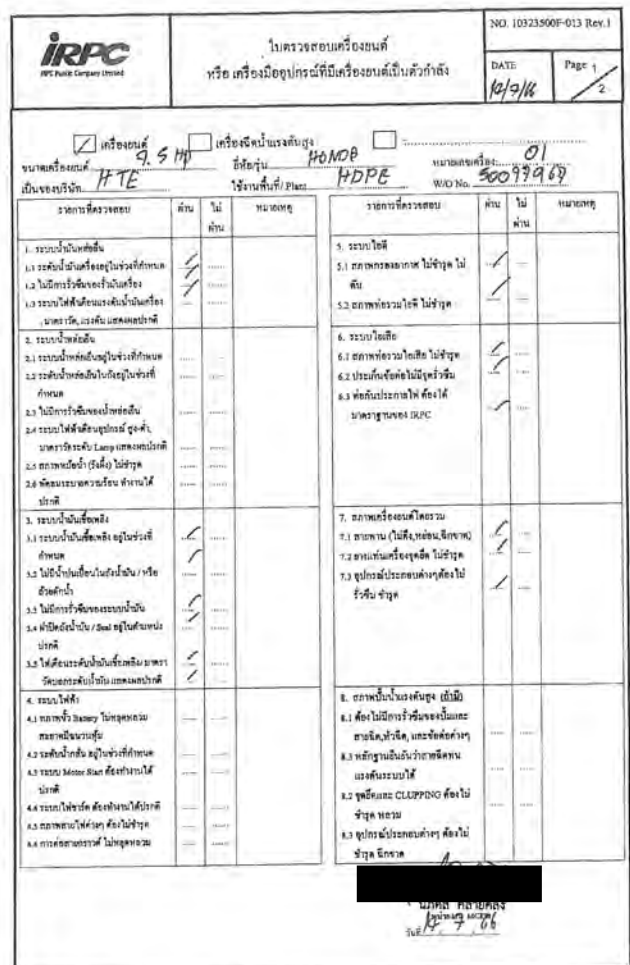 iRPC
IRPC Public Company Limited
ใบตรวจสอบเครื่องยนต์
หรือ เครื่องมืออุปกรณ์ที่มีเครื่องยนต์เป็นตัวกำลัง
NO. 10323500F-013 Rev.1
DATE
Page 1
2
เครื่องยนต์ เครื่องฉีดน้ำแรงดันสูง
ขนาดเครื่องยนต์ 9.5 HP ยี่ห้อ/รุ่น HONDA หมายเลขเครื่อง: 01
เป็นของบริษัท HTE ใช้งานพื้นที่/ Plant HDPE W/O No.
รายการที่ตรวจสอบ ผ่าน ไม่ผ่าน หมายเหตุ
1. ระบบน้ำมันหล่อลื่น
1.1 ระดับน้ำมันเครื่องอยู่ในช่วงที่กำหนด
1.2 ไม่มีการรั่วซึมของรั้วมันเครื่อง
1.3 ระบบไฟฟ้าเตือนแรงดันน้ำมันเครื่อง
, มาตราวัด, แรงดัน แสดงผลปรกติ
2. ระบบน้ำหล่อเย็น
2.1 ระบบน้ำหล่อเย็นอยู่ในช่วงที่กำหนด
2.2 ระดับน้ำหล่อเย็นในถังอยู่ในช่วงที่
กำหนด
2.3 ไม่มีการรั่วซึมของน้ำหล่อเย็น
2.4 ระบบไฟฟ้าเตือนอุปกรณ์ สูง-ต่ำ,
มาตราวัดระดับ Lamp แสดงผลปรกติ
2.5 สภาพหม้อน้ำ (รังผึ้ง) ไม่ชำรุด
2.6 พัดลมระบายความร้อน ทำงานได้
ปรกติ
3. ระบบน้ำมันเชื้อเพลิง
3.1 ระบบน้ำมันเชื้อเพลิง อยู่ในช่วงที่
กำหนด
3.2 ไม่มีน้ำปนเปื้อนในถังน้ำมัน / หรือ
ถ้วยดักน้ำ
3.3 ไม่มีการรั่วซึมของระบบน้ำมัน
3.4 ฝาปิดถังน้ำมัน / Seal อยู่ในตำแหน่ง
ปรกติ
3.5 ไฟเตือนระดับน้ำมันเชื้อเพลิง/มาตรา
วัดบอกระดับน้ำมัน แสดงผลปรกติ
4. ระบบไฟฟ้า
4.1 สภาพขั้ว Battery ไม่หลุดหลวม
สะอาดมีฉนวนหุ้ม
4.2 ระดับน้ำกลั่น อยู่ในช่วงที่กำหนด
4.3 ระบบ Motor Start ต้องทำงานได้
ปรกติ
4.4 ระบบไฟชาร์ต ต้องทำงานได้ปรกติ
4.5 สภาพสายไฟต่างๆ ต้องไม่ชำรุด
4.6 การต่อสายกราวด์ ไม่หลุดหลวม
รายการที่ตรวจสอบ ผ่าน ไม่ผ่าน หมายเหตุ
5. ระบบไอดี
5.1 สภาพกรองอากาศ ไม่ชำรุด ไม่
ตัน
5.2 สภาพท่อรวมไอดี ไม่ชำรุด
6. ระบบไอเสีย
6.1 สภาพท่อรวมไอเสีย ไม่ชำรุด
6.2 ประเก็นข้อต่อไม่มีจุดรั่วซึม
6.3 ท่อกันประกายไฟ ต้องได้
มาตราฐานของ IRPC
7. สภาพเครื่องยนต์โดยรวม
7.1 สายพาน (ไม่ตึง,หย่อน,ฉีกขาด)
7.2 ยางแท่นเครื่องจุดยึด ไม่ชำรุด
7.3 อุปกรณ์ประกอบต่างๆต้องไม่
รั่วซึม ชำรุด
8. สภาพปั๊มน้ำแรงดันสูง (ถ้ามี)
8.1 ต้องไม่มีการรั่วซึมของปั๊มและ
สายฉีด,หัวฉีด, และข้อต่อต่างๆ
8.3 หลักฐานยืนยันว่าสายฉีดทน
แรงดันระบบได้
8.2 จุดยึดและ CLUPPING ต้องไม่
ชำรุด หลวม
8.3 อุปกรณ์ประกอบต่างๆ ต้องไม่
ชำรุด ฉีกขาด
วันที่ 14 7 66